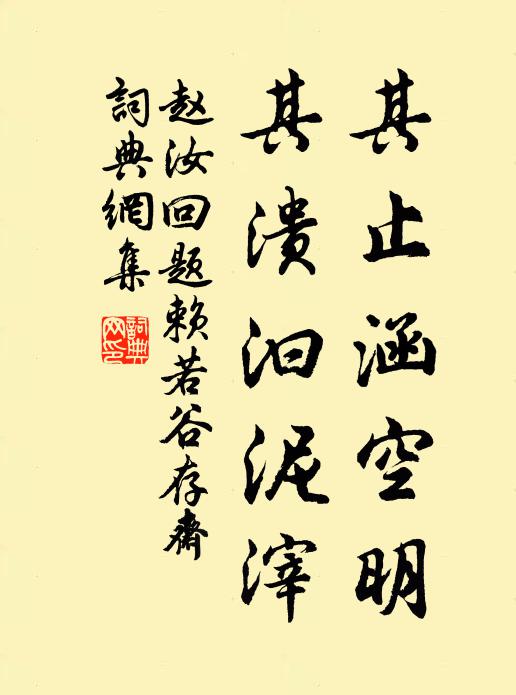 其止涵空明
其溃汩泥滓
赵汝回题赖若谷存斋
詞典網集
詞典网印